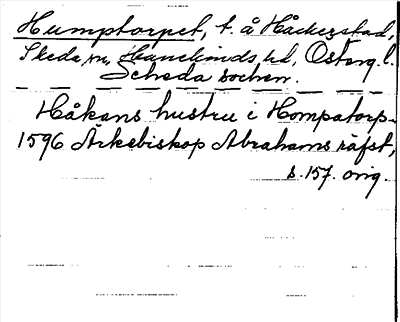 Humptorpet, t. å Håckerstad,
Skeda sn, Hanekinds hd, Österg. l.
Scheda sochen.
Håkans hustru i Hompatorp
1596 Ärkebiskop Abrahams räfst,
s. 157. orig.